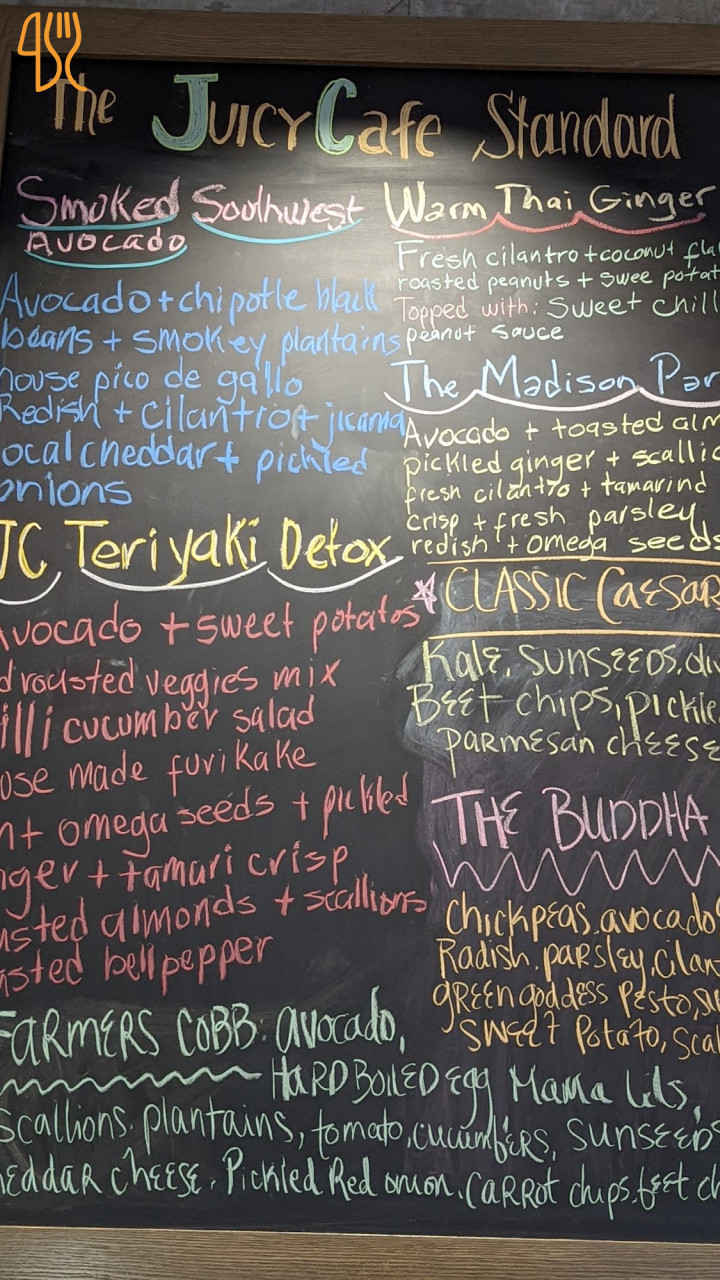 The Juicy Cafe Standard
Smoked Soulhwest
Avocado
Avocado + chipotle black
beans + smokey plantains
house pico de gallo
Redish + cilantro + jicama
ocal cheddar + pickled
onions
JC Teriyaki Detox
Avocado + sweet potatos
d roasted veggies mix
illi cucumber salad
ouse made furikake
nt omega seeds + pickled
nger + tamari crisp
asted almonds + scallions
asted bell pepper
FARMERS COBB: avocado,
HARD BOILED Egg Mama Lils,
Scallions, plantains, tomato, cucumbers, SUNSEEDS
eddar cheese, Pickled Red onion, CARROT chips, beet ch
Warm Thai Ginger
Fresh cilantro + coconut fla
roasted peanuts + swee potat
Topped with: Sweet chill
peanut sauce
The Madison Par
Avocado + toasted alm
pickled ginger + scallio
fresh cilantro + tamarind
crisp + fresh parsley
redish + omega seeds
CLASSIC CAESAR
Kale, SUNSEEDS,
BEET chips, pickle
PARMESAN cheese
THE BUDDHA
Chickpeas, avocado
Radish, parsley, cilan
green goddess pesto, su
SWEET Potato, Scal